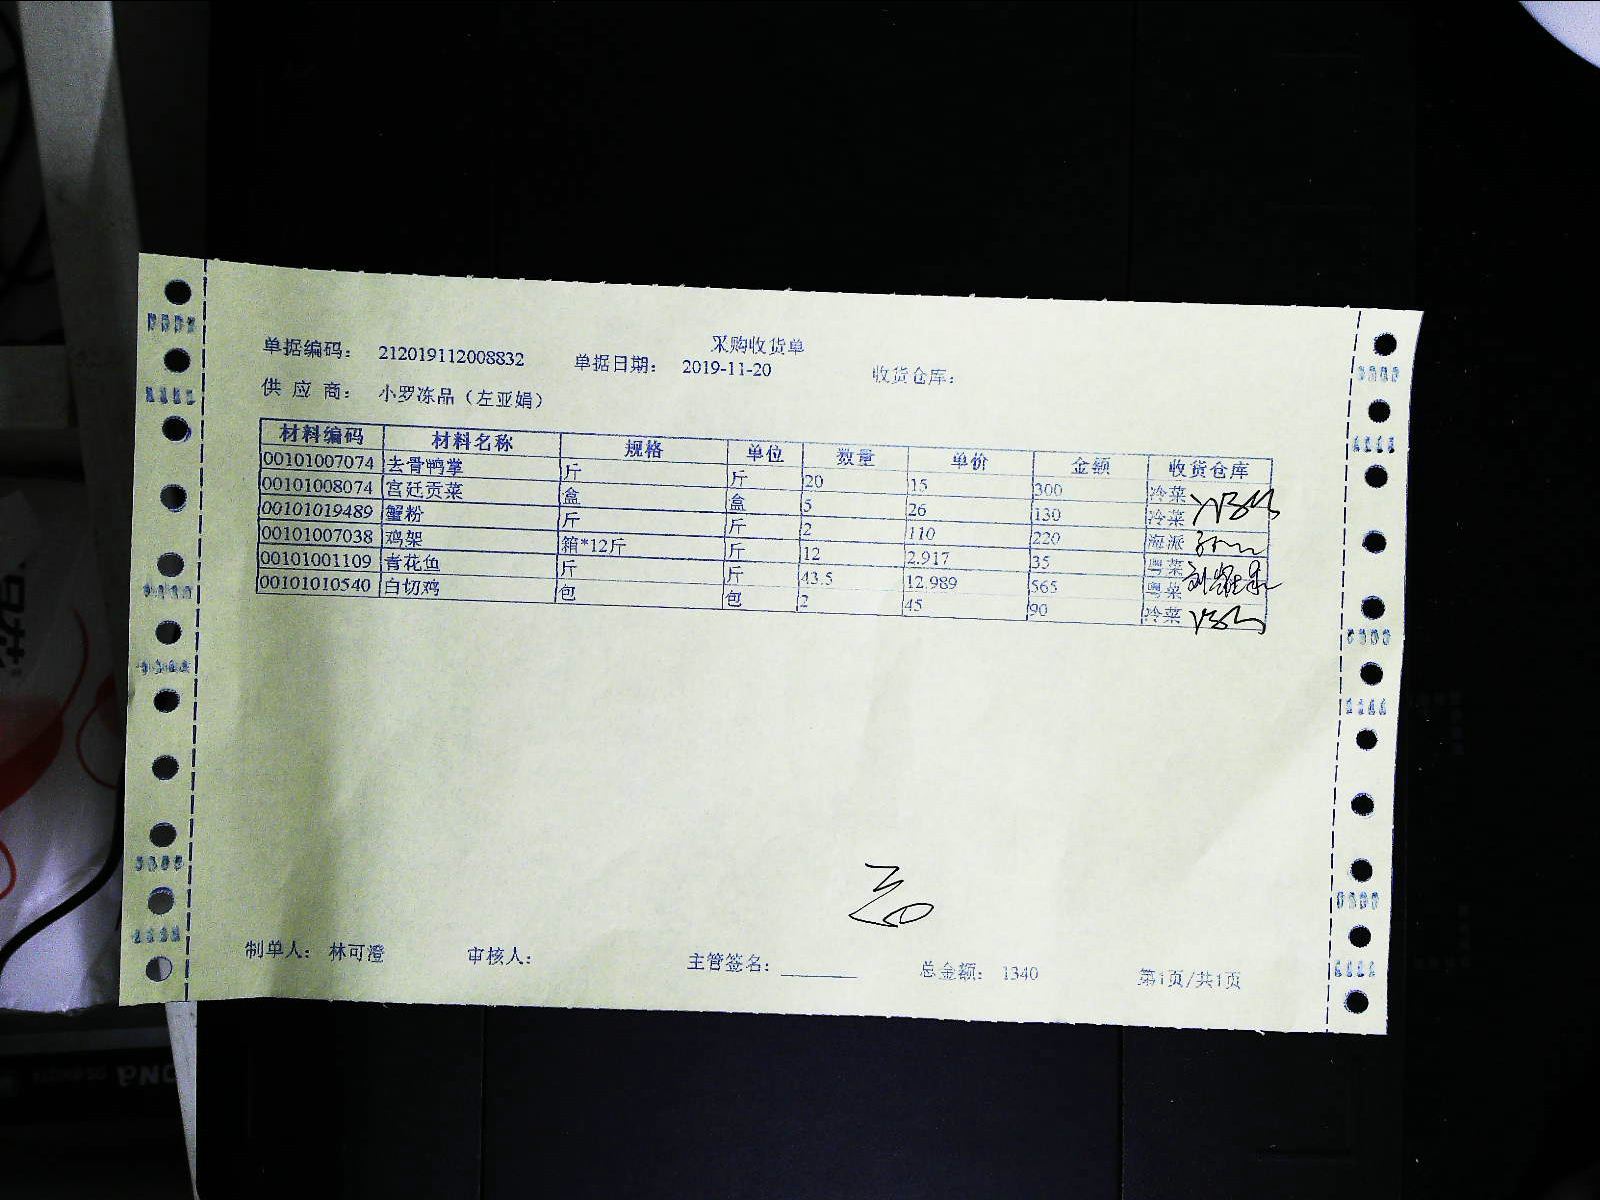 采购收货单
单据编码： 212019112008832 单据日期： 2019-11-20 收货仓库：
供 应 商： 小罗冻品（左亚娟）
材料编码 材料名称 规格 单位 数量 单价 金额 收货仓库
00101007074 去骨鸭掌 斤 斤 20 15 300 冷菜
00101008074 宫廷贡菜 盒 盒 5 26 130 冷菜
00101019489 蟹粉 斤 斤 2 110 220 海派
00101007038 鸡架 箱*12斤 斤 12 2.917 35 粤菜
00101001109 青花鱼 斤 斤 43.5 12.989 565 粤菜
00101010540 白切鸡 包 包 2 45 90 冷菜
制单人： 林可澄 审核人： 主管签名： 总金额： 1340 第1页/共1页